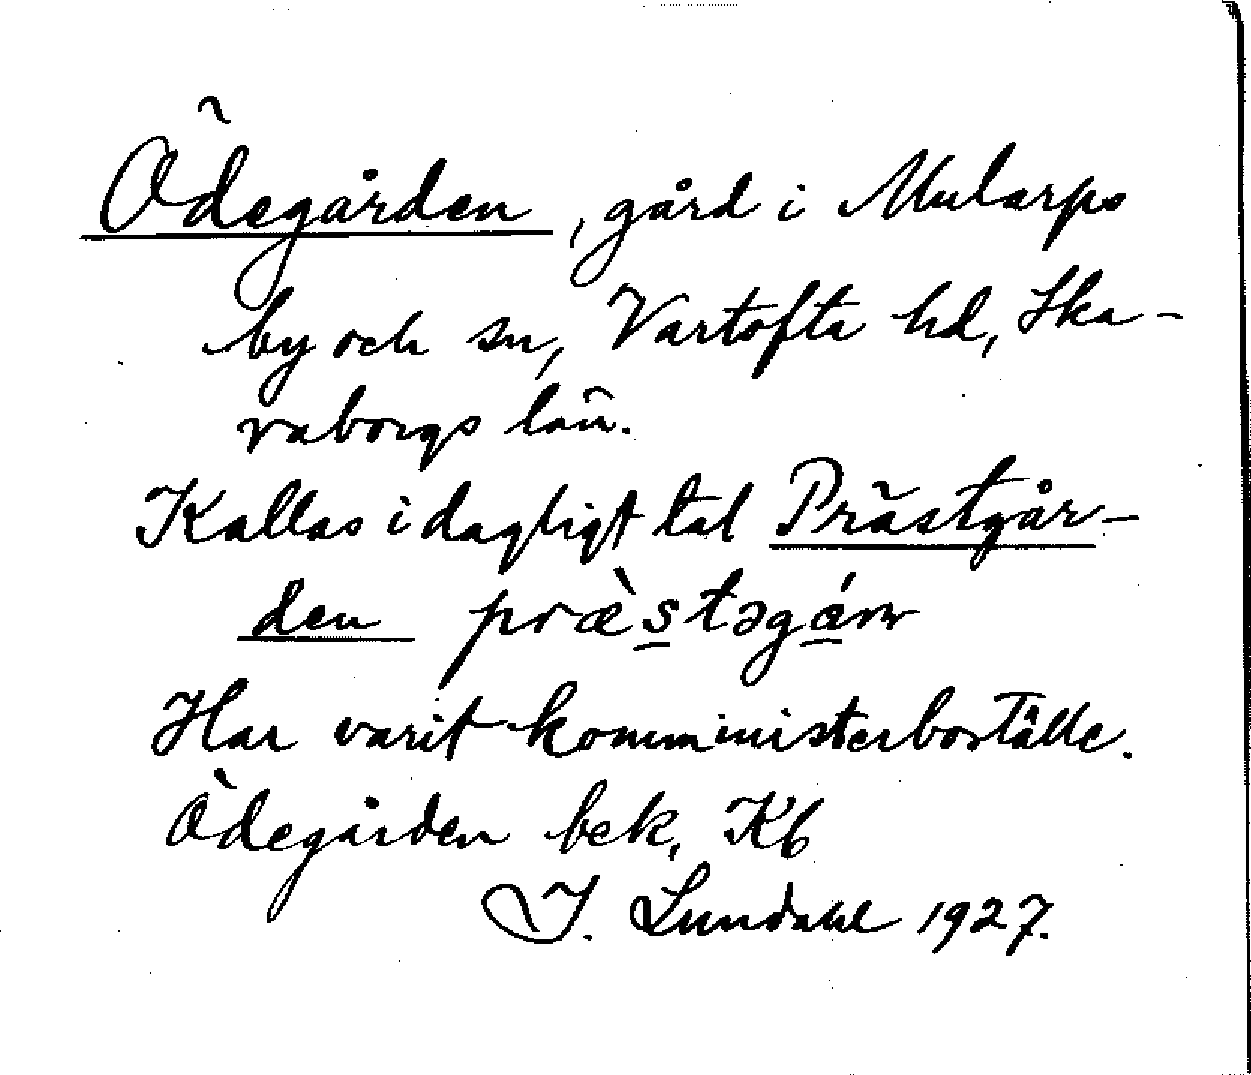 Ödegården, gård i Mularps
by och sn, Vartofta hd, Ska-
raborgs län.
Kallas i dagligt tal Prästgår-
den præ̀s̠təgá̠rn
Har varit komministerboställe.
Ödegården bek, Kb
I. Lundahl 1927.